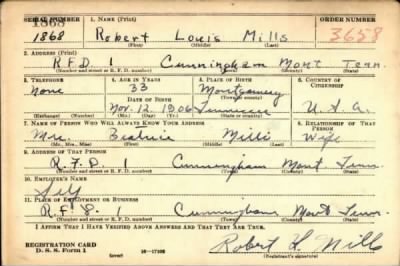 SERIAL NUMBER 1. NAME (Print)
1868 Robert Louis Mills 3658
(First) (Middle) (Last)
2. ADDRESS (Print)
R.F.D. 1 Cunningham Mont Tenn.
(Number and street or R. F. D. number) (Town) (County) (State)
3. TELEPHONE 4. AGE IN YEARS 5. PLACE OF BIRTH 6. COUNTRY OF CITIZENSHIP
None 33 Montgomery
DATE OF BIRTH
Nov. 12, 1906 Tennessee U.S.A.
(Exchange) (Number) (Mo.) (Day) (Yr.) (State or country)
7. NAME OF PERSON WHO WILL ALWAYS KNOW YOUR ADDRESS 8. RELATIONSHIP OF THAT PERSON
Mrs. Beatrice Mills Wife
(Mr., Mrs., Miss) (First) (Middle) (Last)
9. ADDRESS OF THAT PERSON
R.F.D. 1 Cunningham Mont Tenn.
(Number and street or R. F. D. number) (Town) (County) (State)
10. EMPLOYER'S NAME
Self
11. PLACE OF EMPLOYMENT OR BUSINESS
1 Cunningham Mont Tenn.
(Number and street or R. F. D. number) (Town) (County) (State)
I AFFIRM THAT I HAVE VERIFIED ABOVE ANSWERS AND THAT THEY ARE TRUE.
REGISTRATION CARD
D. S. S. Form 1 (over) Robert L. Mills
(Registrant's signature)